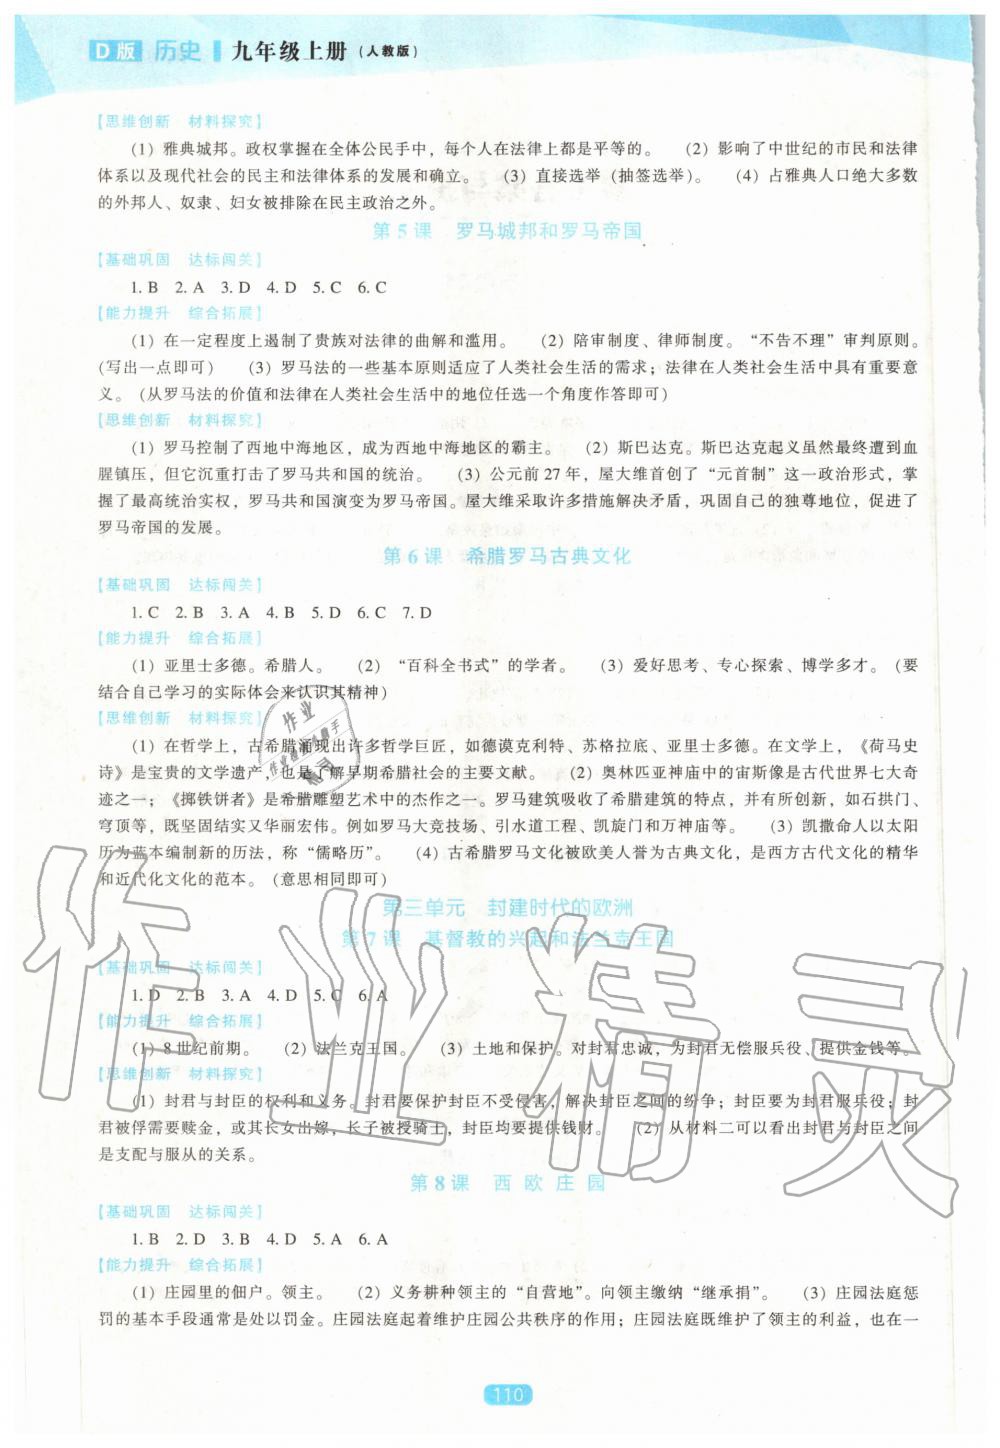 D版 历史 九年级上册 (人教版)
【思维创新 材料探究】
(1) 雅典城邦。政权掌握在全体公民手中，每个人在法律上都是平等的。 (2) 影响了中世纪的市民和法律
体系以及现代社会的民主和法律体系的发展和确立。 (3) 直接选举 (抽签选举)。 (4) 占雅典人口绝大多数
的外邦人、奴隶、妇女被排除在民主政治之外。
第 5 课 罗马城邦和罗马帝国
【基础巩固 达标闯关】
1. B 2. A 3. D 4. D 5. C 6. C
【能力提升 综合拓展】
(1) 在一定程度上遏制了贵族对法律的曲解和滥用。 (2) 陪审制度、律师制度。“不告不理”审判原则。
(写出一点即可) (3) 罗马法的一些基本原则适应了人类社会生活的需求；法律在人类社会生活中具有重要意
义。(从罗马法的价值和法律在人类社会生活中的地位任选一个角度作答即可)
【思维创新 材料探究】
(1) 罗马控制了西地中海地区，成为西地中海地区的霸主。 (2) 斯巴达克。斯巴达克起义虽然最终遭到血
腥镇压，但它沉重打击了罗马共和国的统治。 (3) 公元前 27 年，屋大维首创了“元首制”这一政治形式，掌
握了最高统治实权，罗马共和国演变为罗马帝国。屋大维采取许多措施解决矛盾，巩固自己的独尊地位，促进了
罗马帝国的发展。
第 6 课 希腊罗马古典文化
【基础巩固 达标闯关】
1. C 2. B 3. A 4. B 5. D 6. C 7. D
【能力提升 综合拓展】
(1) 亚里士多德。希腊人。 (2) “百科全书式”的学者。 (3) 爱好思考、专心探索、博学多才。(要
结合自己学习的实际体会来认识其精神)
【思维创新 材料探究】
(1) 在哲学上，古希腊涌现出许多哲学巨匠，如德谟克利特、苏格拉底、亚里士多德。在文学上，《荷马史
诗》是宝贵的文学遗产，也是了解早期希腊社会的主要文献。 (2) 奥林匹亚神庙中的宙斯像是古代世界七大奇
迹之一；《掷铁饼者》是希腊雕塑艺术中的杰作之一。罗马建筑吸收了希腊建筑的特点，并有所创新，如石拱门、
穹顶等，既坚固结实又华丽宏伟。例如罗马大竞技场、引水道工程、凯旋门和万神庙等。 (3) 凯撒命人以太阳
历为蓝本编制新的历法，称“儒略历”。 (4) 古希腊罗马文化被欧美人誉为古典文化，是西方古代文化的精华
和近代化文化的范本。(意思相同即可)
第三单元 封建时代的欧洲
第 7 课 基督教的兴起和法兰克王国
【基础巩固 达标闯关】
1. D 2. B 3. A 4. D 5. C 6. A
【能力提升 综合拓展】
(1) 8 世纪前期。 (2) 法兰克王国。 (3) 土地和保护。对封君忠诚，为封君无偿服兵役、提供金钱等。
【思维创新 材料探究】
(1) 封君与封臣的权利和义务。封君要保护封臣不受侵害，解决封臣之间的纷争；封臣要为封君服兵役；封
君被俘需要赎金，或其长女出嫁，长子被授骑士，封臣均要提供钱财。 (2) 从材料二可以看出封君与封臣之间
是支配与服从的关系。
第 8 课 西 欧 庄 园
【基础巩固 达标闯关】
1. B 2. D 3. B 4. D 5. A 6. A
【能力提升 综合拓展】
(1) 庄园里的佃户。领主。 (2) 义务耕种领主的“自营地”。向领主缴纳“继承捐”。 (3) 庄园法庭惩
罚的基本手段通常是处以罚金。庄园法庭起着维护庄园公共秩序的作用；庄园法庭既维护了领主的利益，也在一
110
作业精灵